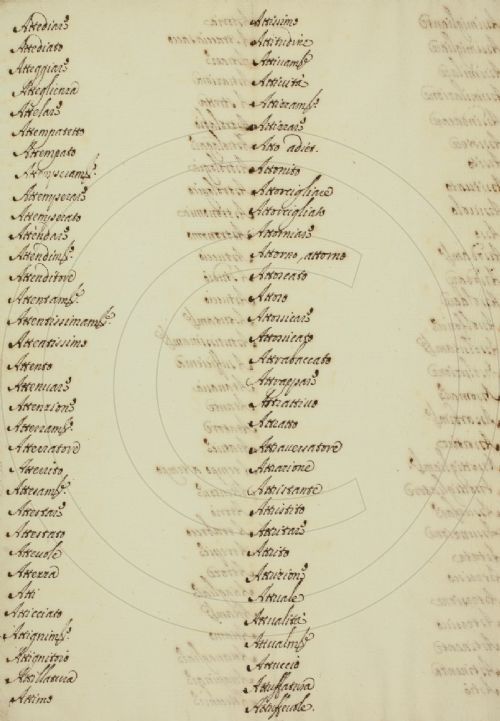 Attediare
Attediato
Atteggiare
Atteglienza
Attelare
Attempatetto
Attempato
Attemperare
Attemperato
Attendare
Attendim.^to
Attenditore
Attentam.^te
Attentissimam.^te
Attentissimo
Attento
Attenuare
Attenzione
Atterram.^to
Atterratore
Atterrito
Attesam.^te
Attestare
Attestato
Attevole
Attezza
Atti
Atticciato
Attignim.^to
Attignitoio
Attillatura
Attimo
Attissimo
Attitudine
Attivam.^te
Attività
Attizzam.^to
Attizzare
Atto adiet.
Attonito
Attorcigliare
Attorcigliato
Attorniare
Attorno, attorno
Attorcato
Attoro
Attossicare
Attossicato
Attrabaccato
Attrappare
Attrattivo
Attratto
Attraversatore
Attrazione
Attristante
Attristito
Attritare
Attrito
Attrizione
Attuale
Attualità
Attualm.^te
Attuccio
Attuffatura
Attuffevole